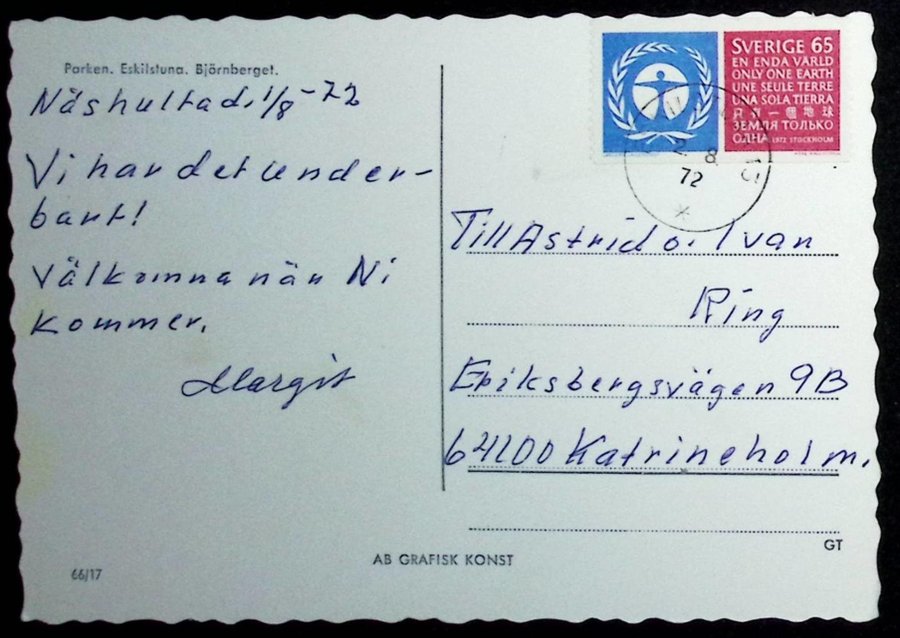 Parken. Eskilstuna. Björnberget.
Näshulta d. 1/8 -72
Vi har det under-
bart!
Välkomna när Ni
kommer.
Margit
SVERIGE 65
EN ENDA VÄRLD
ONLY ONE EARTH
UNE SEULE TERRE
UNA SOLA TIERRA
只有一個地球
ЗЕМЛЯ ТОЛЬКО
ОДНА 1972 STOCKHOLM
2. 8.
72
Till Astrid o. Ivan
Ring
Eriksbergsvägen 9B
64100 Katrineholm.
GT
AB GRAFISK KONST
66/17